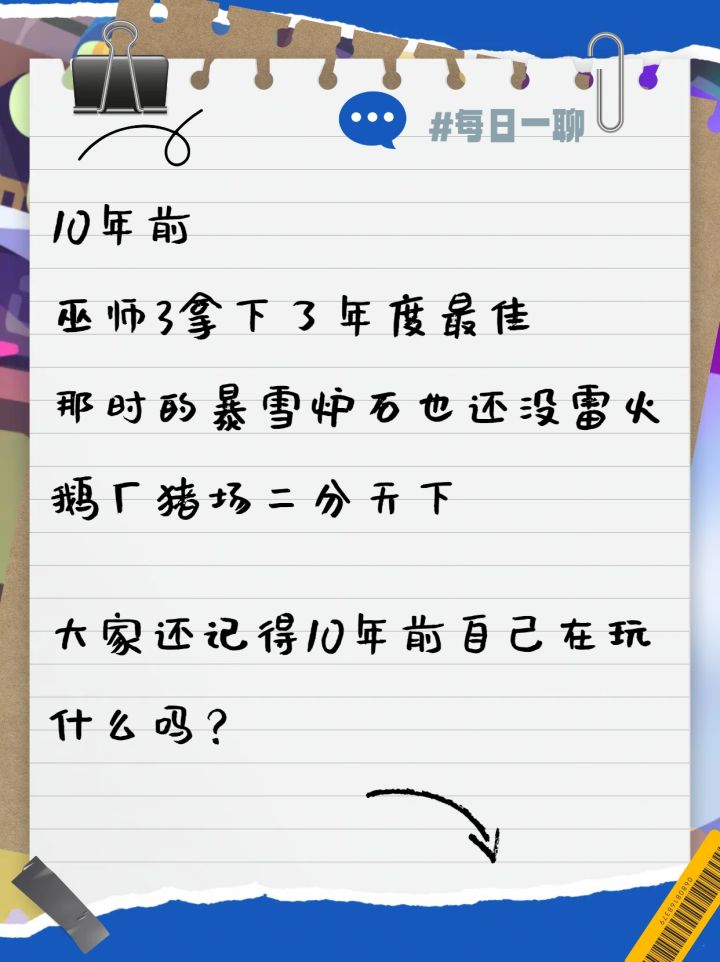 #每日一聊
10年前
巫师3拿下了年度最佳
那时的暴雪炉石也还没雷火
鹅厂猪场二分天下
大家还记得10年前自己在玩
什么吗？